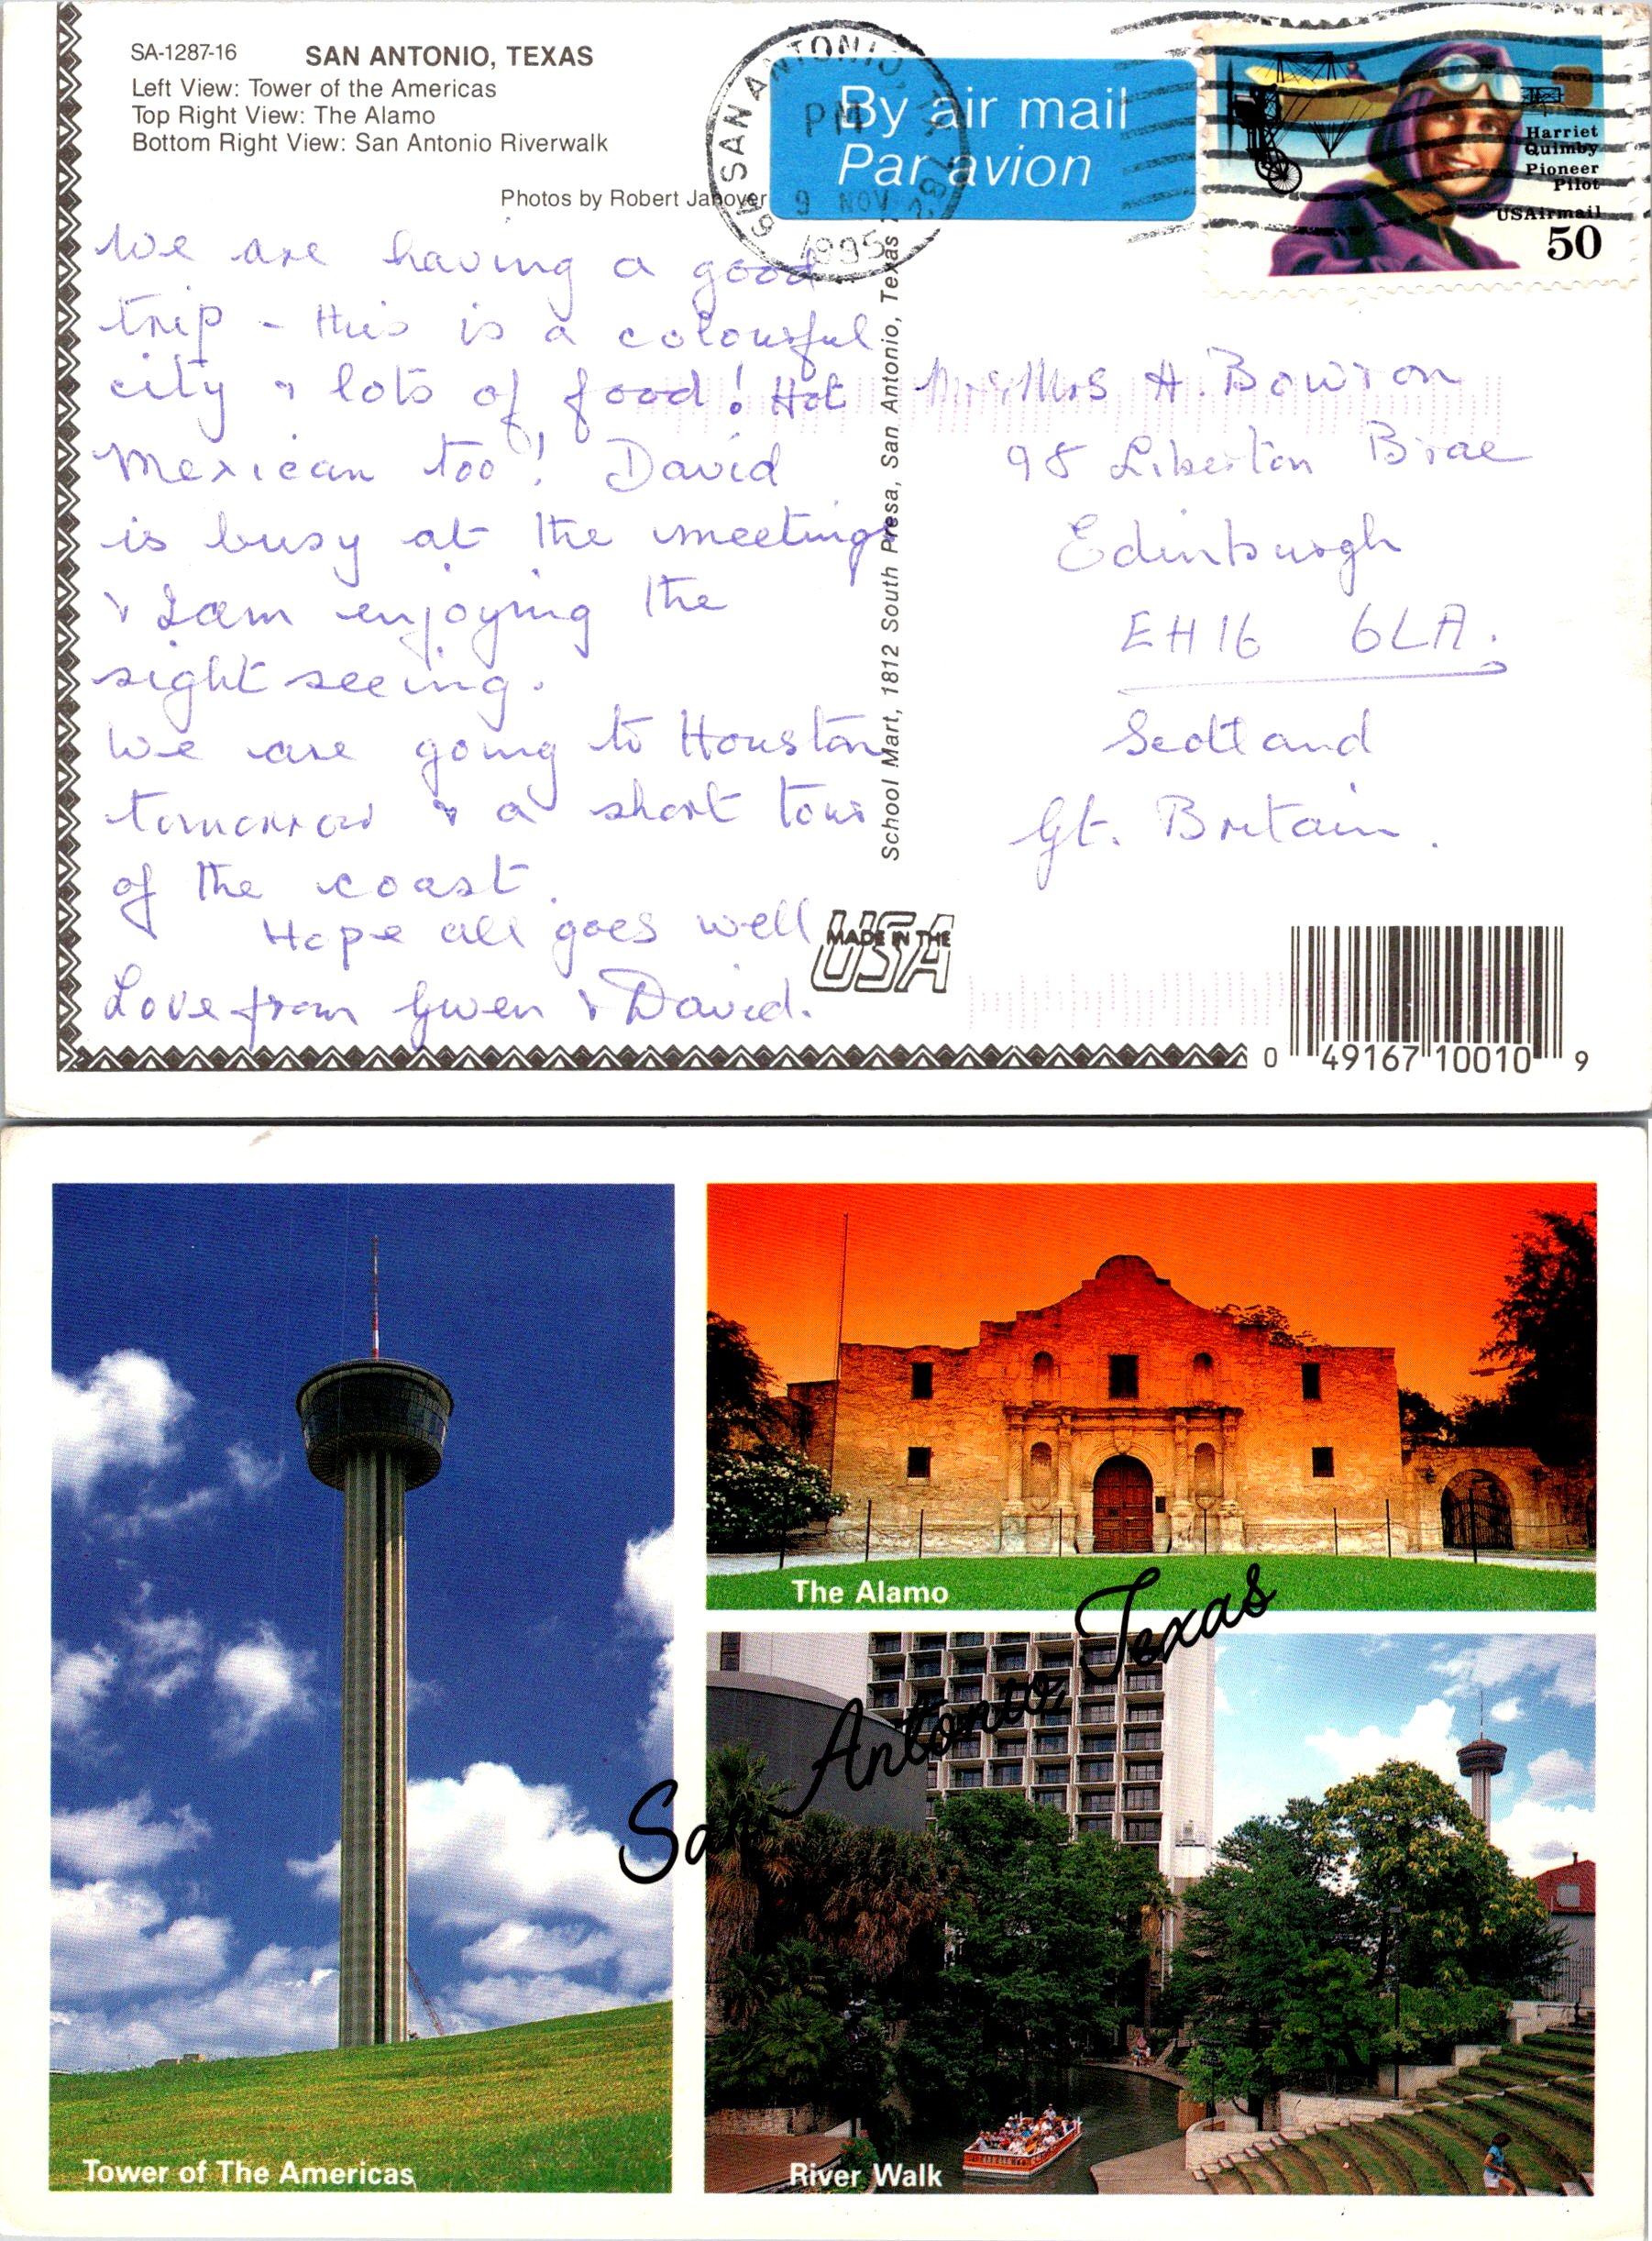 SA-1287-16 SAN ANTONIO, TEXAS
Left View: Tower of the Americas
Top Right View: The Alamo
Bottom Right View: San Antonio Riverwalk
Photos by Robert Janover
SAN ANTONIO, TX
PM
9 NOV
1995
By air mail
Par avion
Harriet
Quimby
Pioneer
Pilot
USAirmail
50
We are having a good
trip - this is a colourful
city & lots of food! Hot
Mexican too! David
is busy at the meetings
& I am enjoying the
sight seeing.
We are going to Houston
tomorrow & a short tour
of the coast.
Hope all goes well
Love from Gwen & David.
School Mart, 1812 South Presa, San Antonio, Texas
Mr & Mrs A. Bowron
98 Liberton Brae
Edinburgh
EH16 6LA.
Scotland
Gt. Britain.
MADE IN THE
USA
0 49167 10010 9
The Alamo
San Antonio, Texas
Tower of The Americas
River Walk